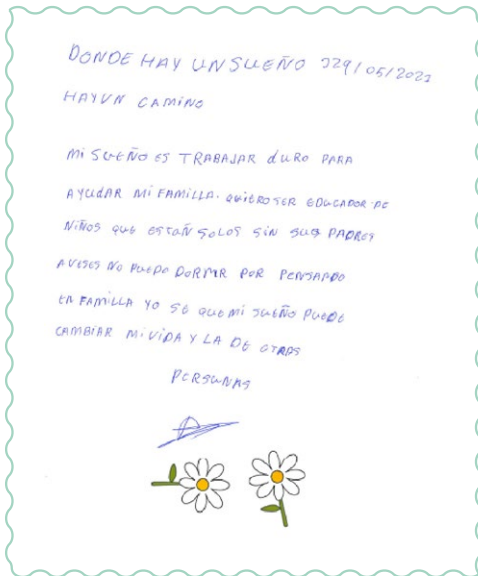 DONDE HAY UN SUEÑO 329/05/2022
HAY UN CAMINO
Mi SUEÑO ES TRABAJAR dURO PARA
AYUdAR Mi FAMiLLA. QUiERO SER EDUCADOR DE
NiÑOS QUE ESTAÑ SOLOS SiN SUS PADRES
AVESES NO PUEDO DORMiR POR PENSANDO
EN FAMiLLA YO SE QUE Mi SUEÑO PUEDE
CAMBiAR Mi ViDA Y LA DE OTRAS
PERSONAS